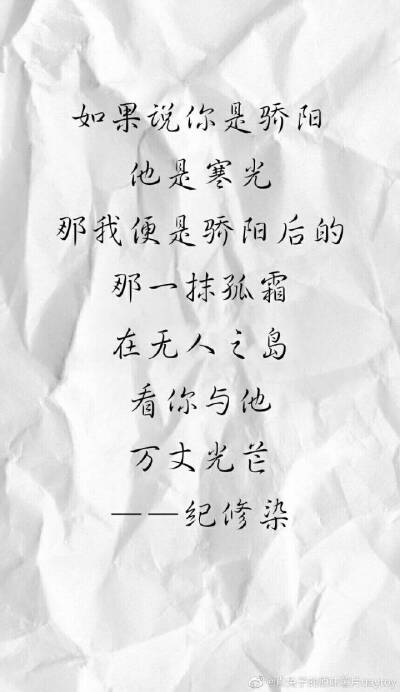 如果说你是骄阳
他是寒光
那我便是骄阳后的
那一抹孤霜
在无人之岛
看你与他
万丈光芒
——纪修染